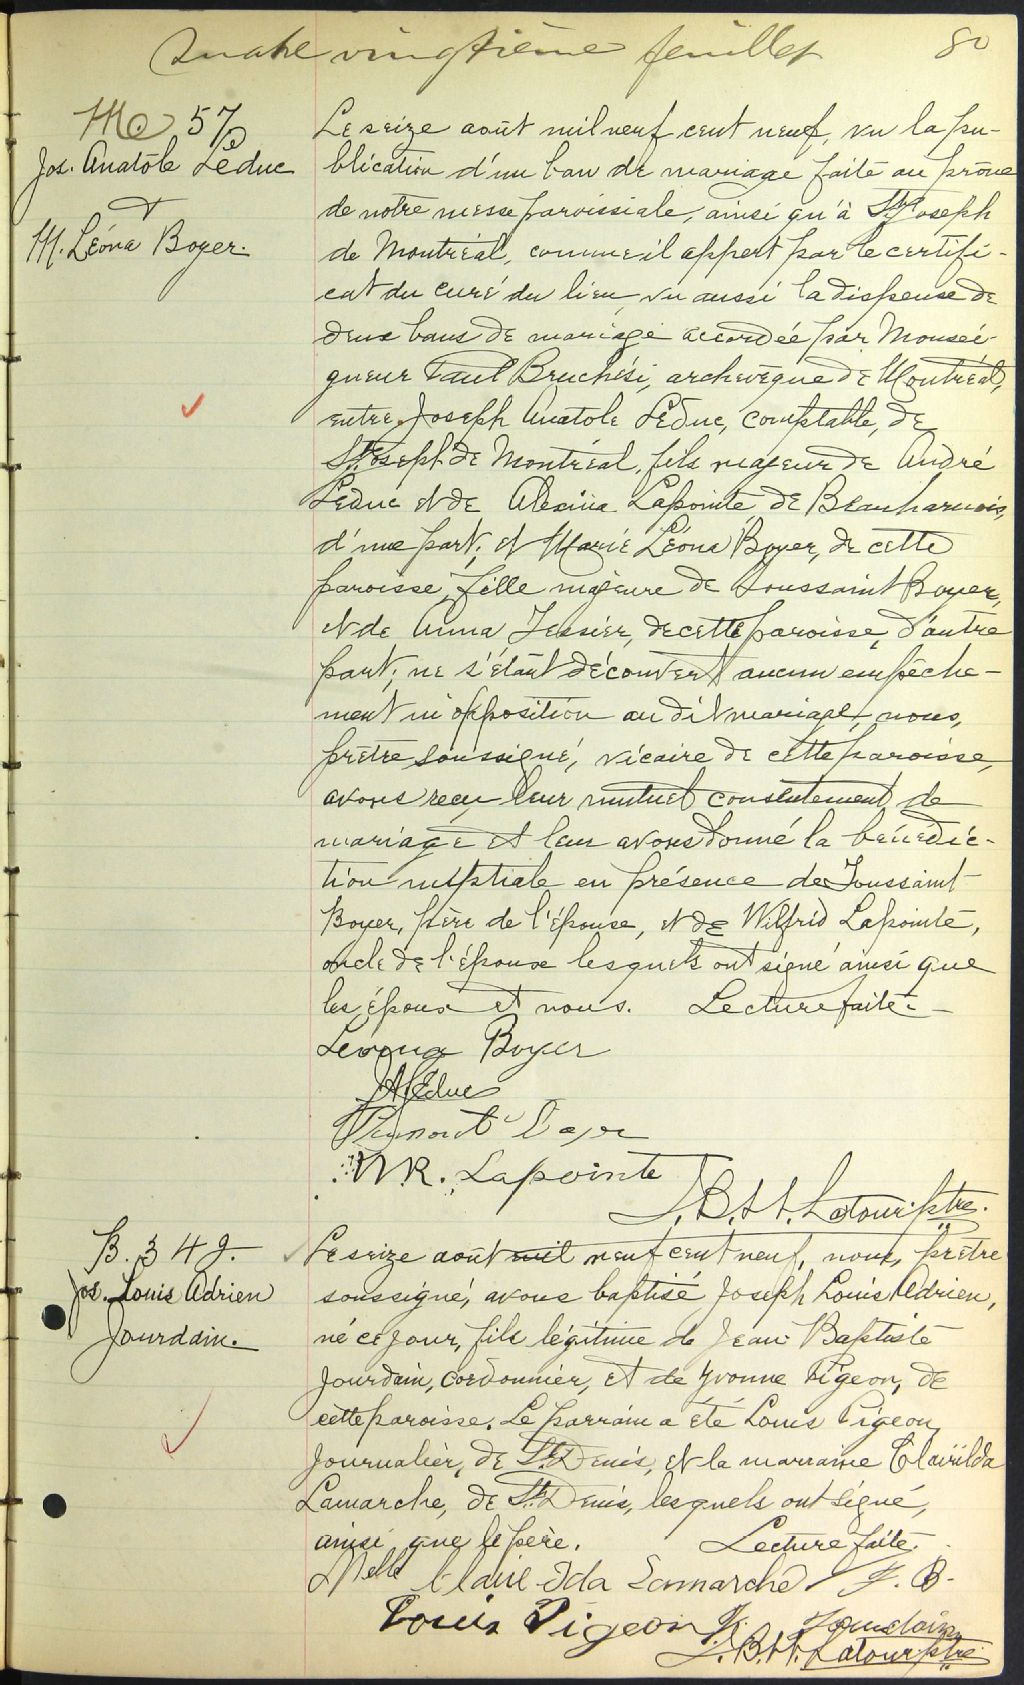 Quatre vingtième feuillet 80
M. 57
Jos. Anatole Leduc
&
M. Léona Boyer.
Le seize août mil neuf cent neuf, vu la pu-
blication d'un ban de mariage faite au prône
de notre messe paroissiale, ainsi qu'à St Joseph
de Montréal, comme il appert par le certifi-
cat du curé du lieu, vu aussi la dispense de
deux bans de mariage accordée par Monsei-
gneur Paul Bruchési, archevêque de Montréal,
entre Joseph Anatole Leduc, comptable, de
St Joseph de Montréal, fils majeur de André
Leduc et de Alexina Lapointe de Beauharnois,
d'une part; et Marie Léona Boyer, de cette
paroisse, fille majeure de Toussaint Boyer,
et de Anna Tessier, de cette paroisse, d'autre
part; ne s'étant découvert aucun empêche-
ment ni opposition au dit mariage, nous,
prêtre soussigné, vicaire de cette paroisse,
avons reçu leur mutuel consentement de
mariage et leur avons donné la bénédic-
tion nuptiale en présence de Toussaint
Boyer, père de l'épouse, et de Wilfrid Lapointe,
oncle de l'époux lesquels ont signé ainsi que
les époux et nous. Lecture faite.
Léona Boyer
JALeduc
Boyer
W.R. Lapointe
J.B.H. Latour ptre.
B. 349.
Jos. Louis Adrien
Jourdain.
Le seize août mil neuf cent neuf, nous, prêtre
soussigné, avons baptisé Joseph Louis Adrien,
né ce jour, fils légitime de Jean Baptiste
Jourdain, cordonnier, et de Yvonne Pigeon, de
cette paroisse. Le parrain a été Louis Pigeon,
journalier, de St Denis, et la marraine Clairilda
Lamarche, de St Denis, lesquels ont signé,
ainsi que le père. Lecture faite.
Melle Claire-Ida Lamarche J. B.
Louis Pigeon Jr. Jourdain
J.B.H. Latour ptre